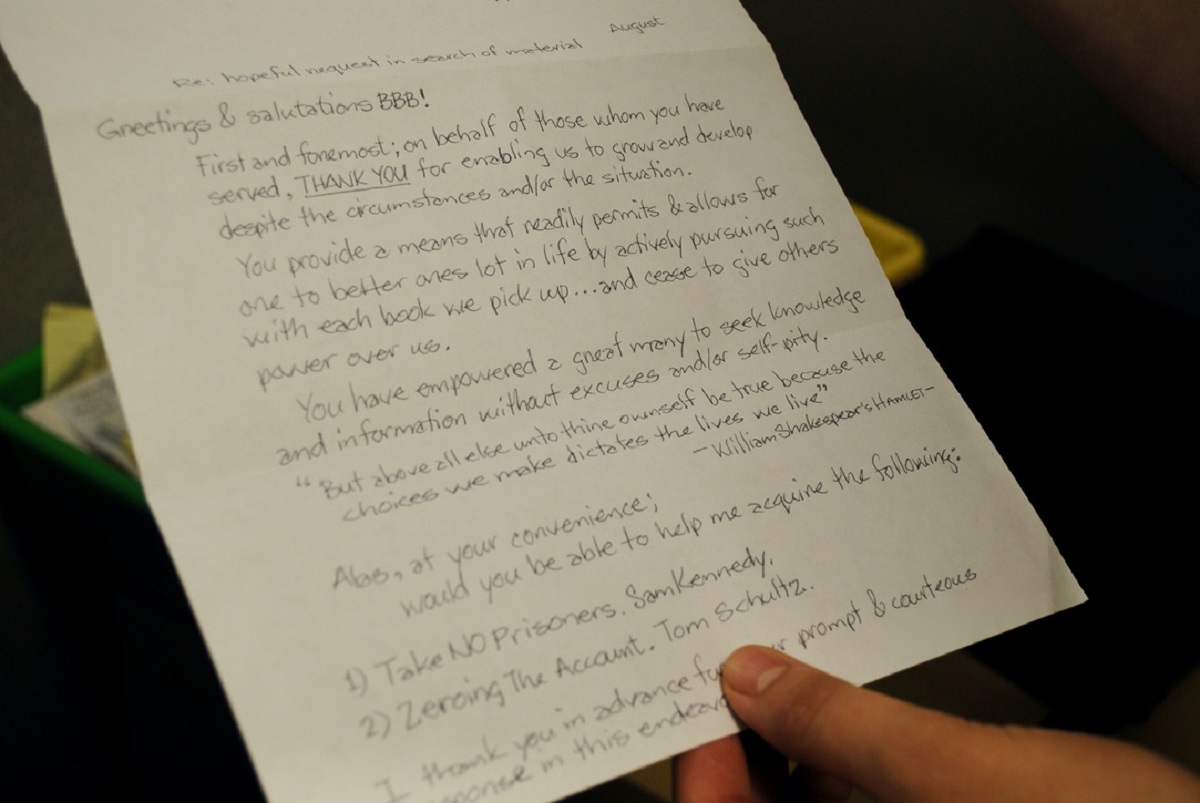 August
Re: hopeful request in search of material
Greetings & salutations BBB!
First and foremost; on behalf of those whom you have
served, THANK YOU for enabling us to grow and develop
despite the circumstances and/or the situation.
You provide a means that readily permits & allows for
one to better ones lot in life by actively pursuing such
with each book we pick up...and cease to give others
power over us.
You have empowered a great many to seek knowledge
and information without excuses and/or self-pity.
"But above all else unto thine ownself be true because the
choices we make dictates the lives we live"
-William Shakespear's HAMLET-
Alas, at your convenience;
would you be able to help me acquire the following:
1) Take NO Prisoners. Sam Kennedy.
2) Zeroing The Account. Tom Schultz.
I thank you in advance for prompt & courteous
in this